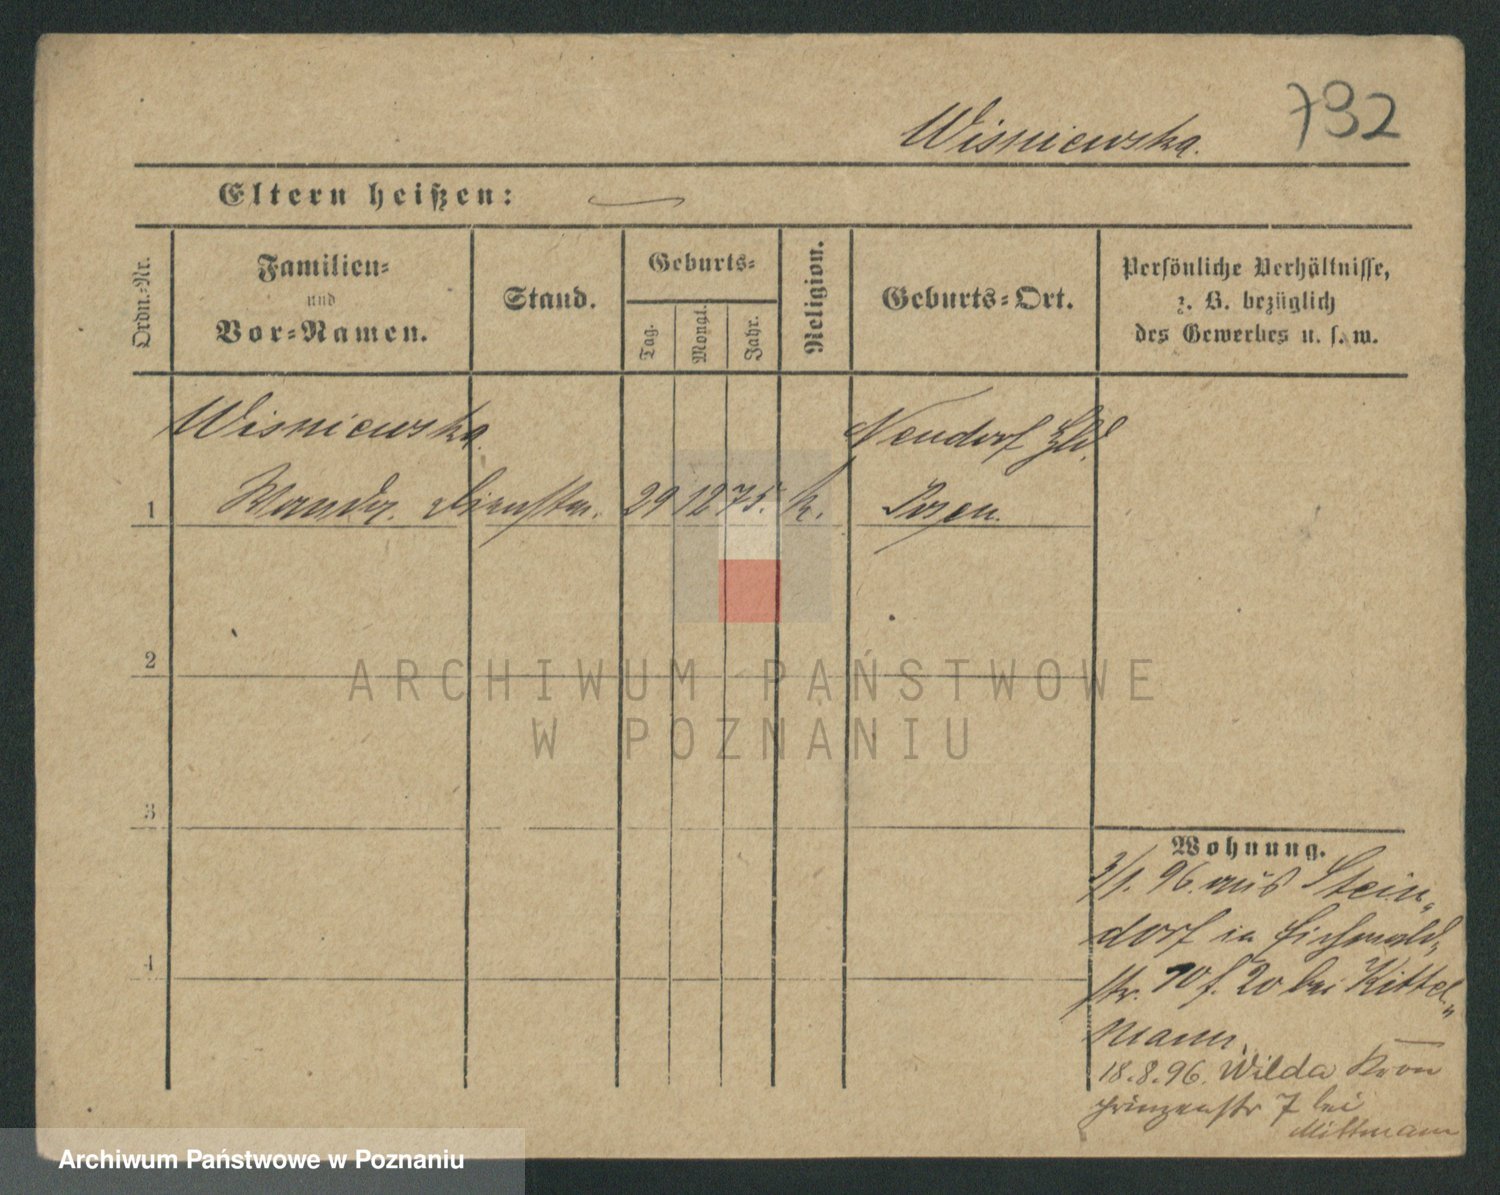 Wisniewska.
732
Eltern heißen:
Ordn.-Nr.
Familien-
und
Vor-Namen.
Stand.
Geburts-
Tag.
Monat.
Jahr.
Religion.
Geburts-Ort.
Persönliche Verhältnisse,
z. B. bezüglich
des Gewerbes u. s. w.
Wisniewska
Neudorf
1 Wanda. 29 12 75. k. Posen
2
3
4
Wohnung.
3/1. 96. aus Stein-
dorf in Eichwald-
str. 10 f. 20 bei Kittel-
mann.
18.8.96. Wilda Kron
prinzenstr 7 bei
Mittmann
ARCHIWUM PAŃSTWOWE
W POZNANIU
Archiwum Państwowe w Poznaniu